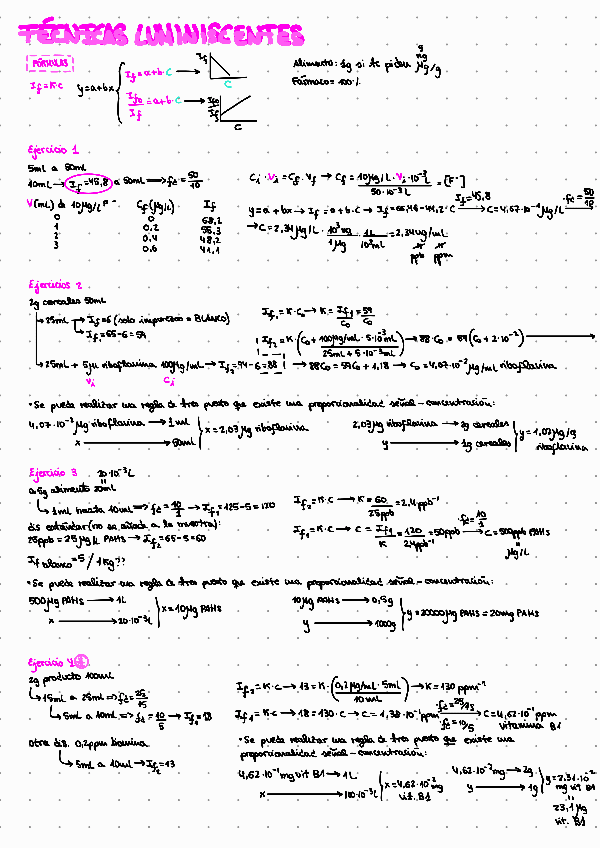 TÉCNICAS LUMINISCENTES
FÓRMULAS
If=K·C
y=a+bx
If=a+b·C
If0/If=a+b·C
If
C
If0/If
C
Alimento: 1g si te piden µg/g
Fármaco: 100%
Ejercicio 1
5mL a 50mL
10mL → If=45,8 a 50mL → fd=50/10
V(mL) de 10µg/L F⁻ Cf(µg/L) If
0 0 68,2
1 0,2 55,3
2 0,4 48,2
3 0,6 41,1
Ci·Vi=Cf·Vf → Cf=10µg/L·Vi·10⁻³L/50·10⁻³L=[F⁻]
y=a+bx → If=a+b·C → If=65,46-44,2·C If=45,8 → C=4,67·10⁻¹µg/L ·fd=50/10
→C=2,34µg/L·10³ng/1µg·1L/10³mL=2,34ng/mL
ppb ppm
Ejercicios 2
2g cereales 50mL
→25mL → If=6 (solo impurezas=BLANCO)
→If1=65-6=59
→25mL + 5µL riboflavina 100µg/mL → If2=94-6=88
Vi Ci
If1=K·C0→K=If1/C0=59/C0
If2=K·(C0+100µg/mL·5·10⁻³mL/25mL+5·10⁻³mL) →88·C0=59(C0+2·10⁻²)
→88C0=59C0+1,18 → C0=4,07·10⁻²µg/mL riboflavina
*Se puede realizar una regla de tres puesto que existe una proporcionalidad señal-concentración:
4,07·10⁻²µg riboflavina → 1mL
x → 50mL
x=2,03µg riboflavina
2,03µg riboflavina → 2g cereales
y → 1g cereales
y=1,02µg/g riboflavina
Ejercicio 3
20·10⁻³L
0,5g alimento 20mL
→1mL hasta 10mL → fd=10/1 → If1=125-5=120
dis estándar (no se añade a la muestra):
25ppb=25µg/L PAHS → If2=65-5=60
If blanco=5 / 1Kg??
If2=K·C → K=60/25ppb=2,4ppb⁻¹
If1=K·C → C=If1/K=120/2,4ppb⁻¹=50ppb ·fd=10/1 → C=500ppb PAHS
µg/L
*Se puede realizar una regla de tres puesto que existe una proporcionalidad señal-concentración:
500µg PAHS → 1L
x → 20·10⁻³L
x=10µg PAHS
10µg PAHS → 0,5g
y → 1000g
y=20000µg PAHS=20mg PAHS
Ejercicio 4
2g producto 100mL
→15mL a 25mL → fd=25/15
→5mL a 10mL → fd=10/5 → If1=18
otra dis. 0,2ppm tiamina
→5mL a 10mL → If2=13
If2=K·C → 13=K·(0,2µg/mL·5mL/10mL) → K=130ppm⁻¹
If1=K·C → 18=130·C → C=1,38·10⁻¹ppm ·fd=25/15 ·fd=10/5 → C=4,62·10⁻¹ppm
vitamina B1
*Se puede realizar una regla de tres puesto que existe una
proporcionalidad señal-concentración:
4,62·10⁻¹mg vit B1 → 1L
x → 100·10⁻³L
x=4,62·10⁻² mg vit. B1
4,62·10⁻²mg → 2g
y → 1g
y=2,31·10⁻² mg vit B1
23,1µg vit. B1